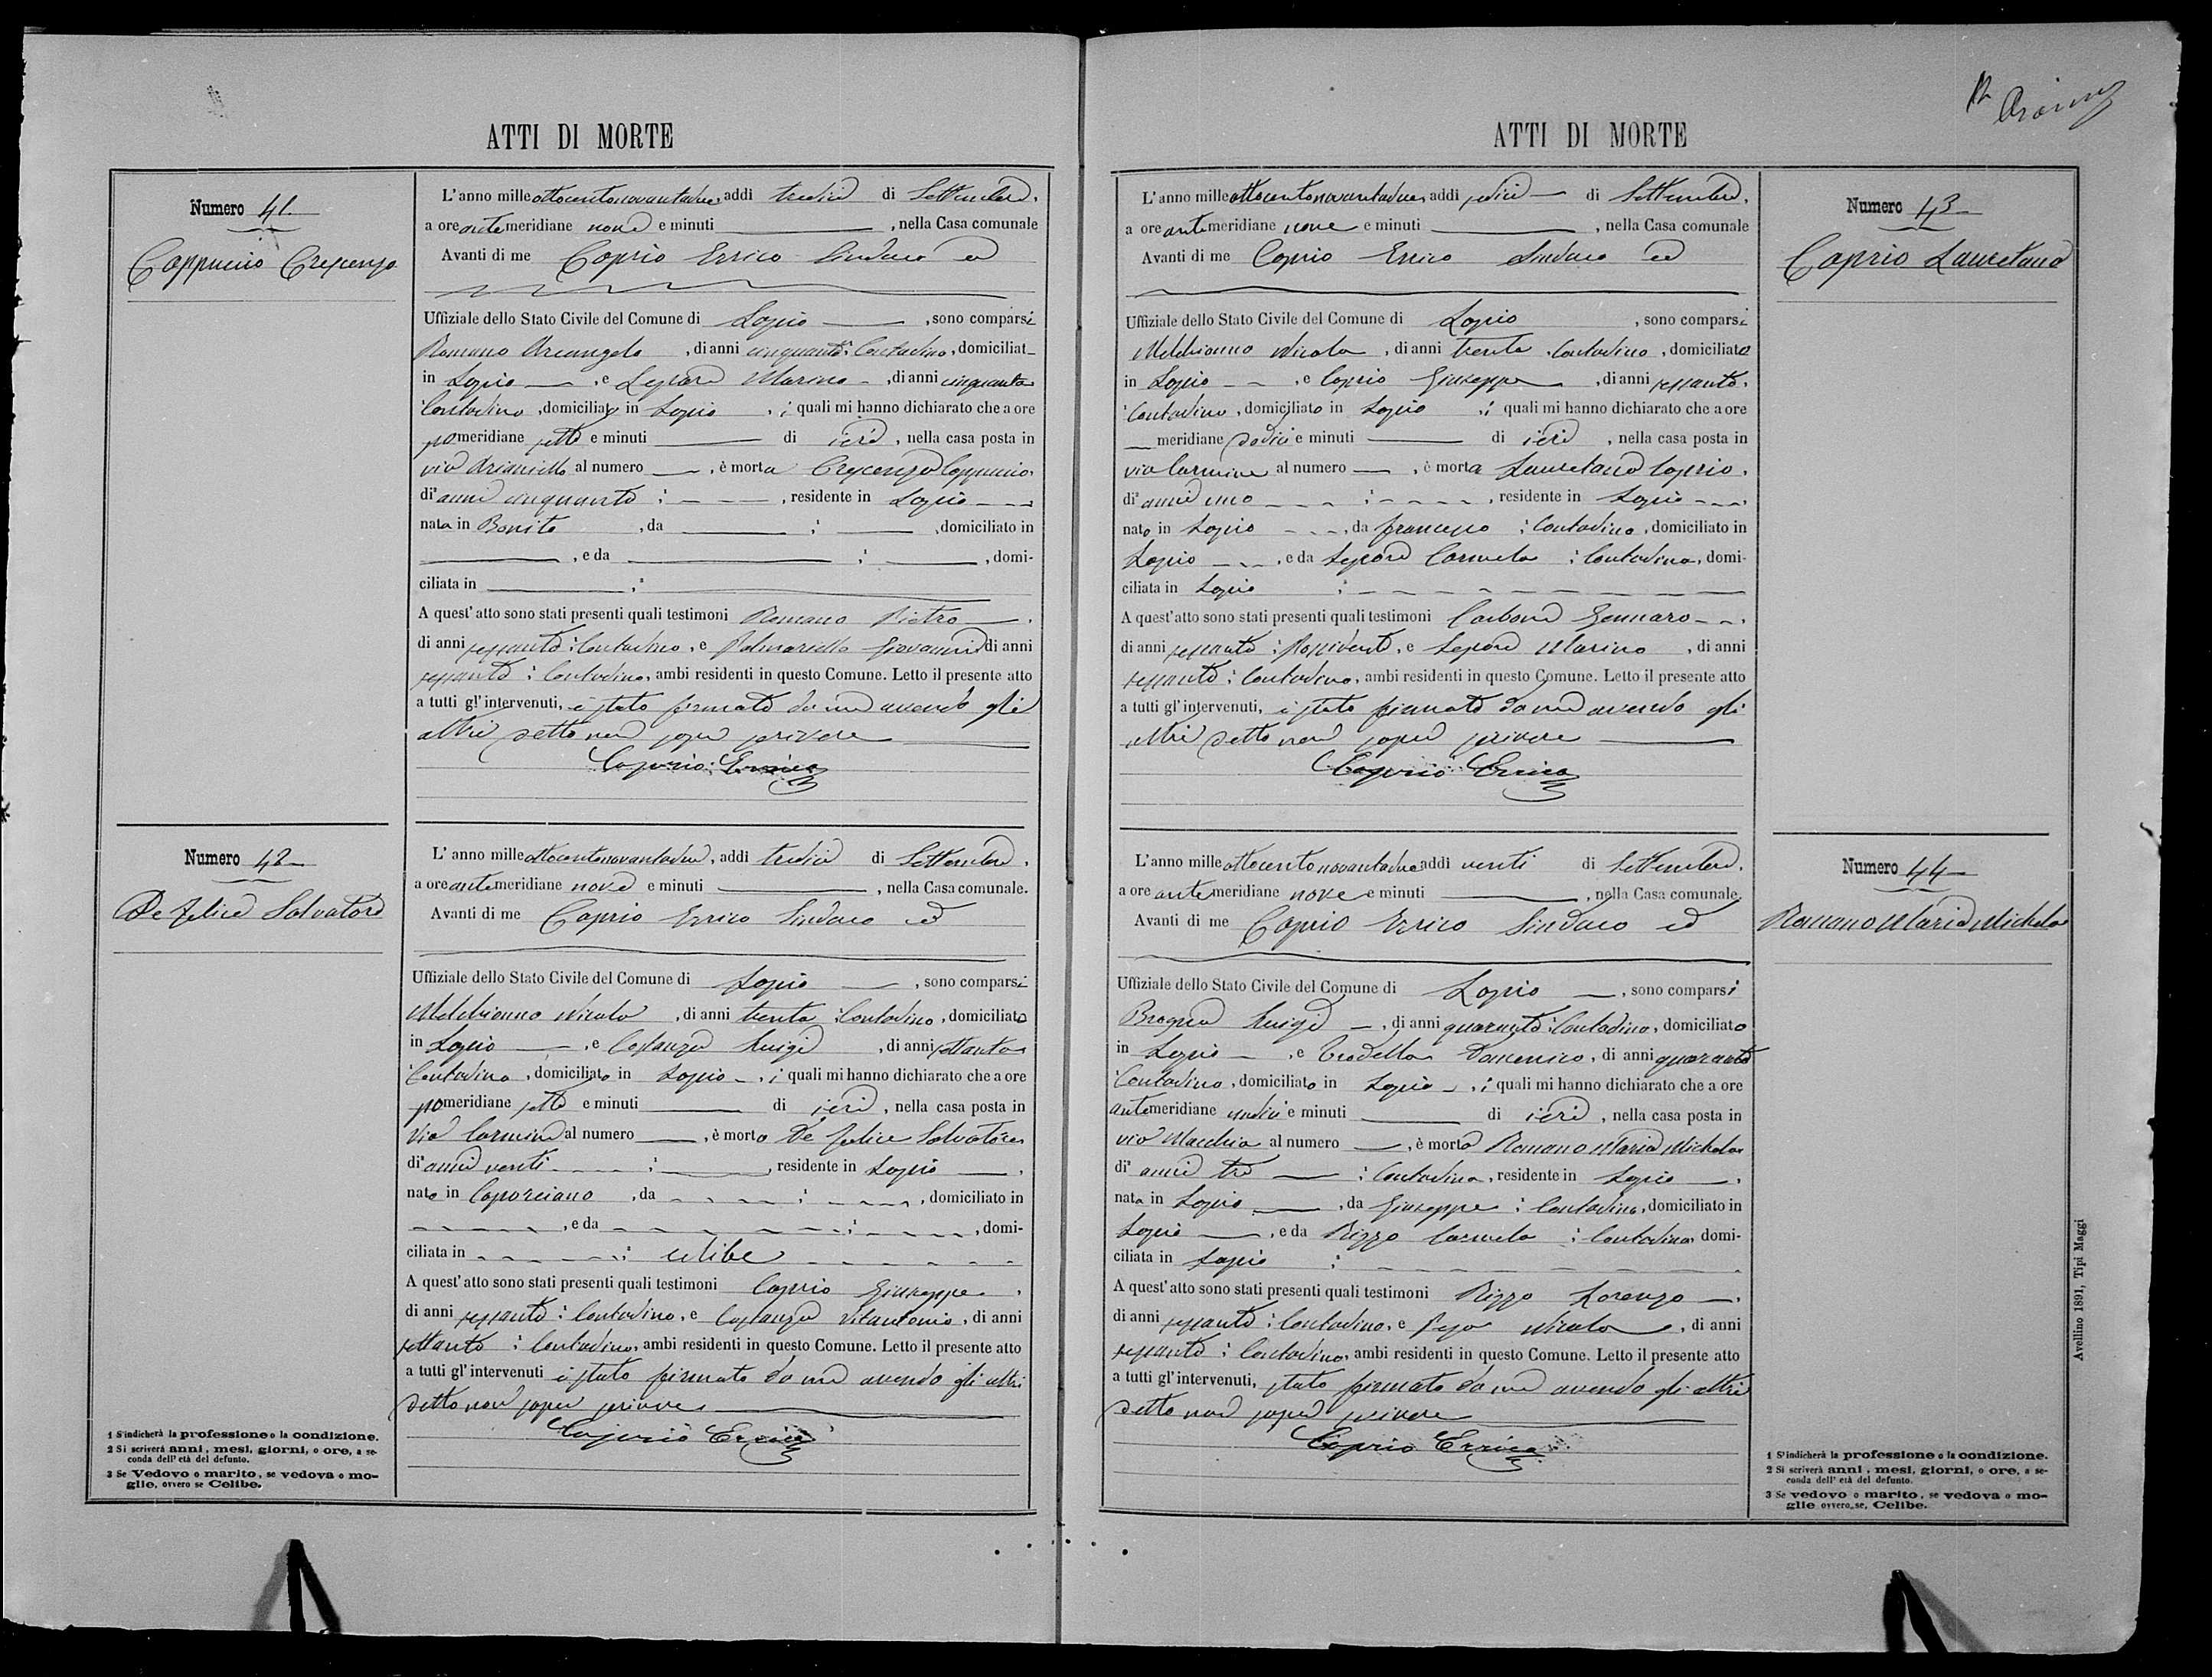 ATTI DI MORTE
Numero 41.
Cappuccio Crescenza
L'anno milleottocentonovantadue, addì tredici di Settembre,
a ore antemeridiane nove e minuti , nella Casa comunale
Avanti di me Caprio Errico Sindaco ed
Uffiziale dello Stato Civile del Comune di Lapio , sono comparsi
Romano Arcangelo , di anni cinquanta, Contadino, domiciliat
in Lapio , e Lepore Marino , di anni cinquanta
Contadino, domiciliato in Lapio , i quali mi hanno dichiarato che a ore
pomeridiane sette e minuti di ieri , nella casa posta in
via al numero , è morta Crescenza Cappuccio,
di anni cinquanta ; , residente in Lapio
nata in Bonito , da ; , domiciliato in
, e da ; , domi-
ciliata in ;
A quest'atto sono stati presenti quali testimoni Romano Pietro ,
di anni sessanta ; Contadino, e Palmariello Giovanni di anni
sessanta ; Contadino, ambi residenti in questo Comune. Letto il presente atto
a tutti gl'intervenuti, è stato firmato da me avendo gli
altri detto non saper scrivere
Caprio Errico
Numero 42
De Felice Salvatore
L'anno milleottocentonovantadue, addì tredici di Settembre,
a ore antemeridiane nove e minuti , nella Casa comunale.
Avanti di me Caprio Errico Sindaco ed
Uffiziale dello Stato Civile del Comune di Lapio , sono comparsi
Melchionno Nicola , di anni trenta ; Contadino, domiciliato
in Lapio , e Costanza Luigi , di anni settanta
Contadino, domiciliato in Lapio , i quali mi hanno dichiarato che a ore
pomeridiane sette e minuti di ieri , nella casa posta in
via Carmine al numero , è morto De Felice Salvatore
di anni venti ; , residente in Lapio ,
nato in Caporciano , da ; , domiciliato in
, e da ; , domi-
ciliata in ; celibe
A quest'atto sono stati presenti quali testimoni Caprio Giuseppe ,
di anni sessanta ; Contadino, e Costanza Vitantonio, di anni
settanta ; Contadino, ambi residenti in questo Comune. Letto il presente atto
a tutti gl'intervenuti è stato firmato da me avendo gli altri
detto non saper scrivere
Caprio Errico
1 S'indicherà la professione o la condizione.
2 Si scriverà anni, mesi, giorni, o ore, a se-
conda dell'età del defunto.
3 Se Vedovo o marito, se vedova o mo-
glie, ovvero se Celibe.
ATTI DI MORTE
L'anno milleottocentonovantadue, addì sedici di Settembre,
a ore antemeridiane nove e minuti , nella Casa comunale
Avanti di me Caprio Errico Sindaco ed
Uffiziale dello Stato Civile del Comune di Lapio , sono comparsi
Melchionno Nicola , di anni trenta , Contadino , domiciliato
in Lapio , e Caprio Giuseppe , di anni sessanta,
Contadino, domiciliato in Lapio , i quali mi hanno dichiarato che a ore
meridiane dodici e minuti di ieri , nella casa posta in
via Carmine al numero , è morta Lauretana Caprio,
di anni uno ; , residente in Lapio
nato in Lapio , da Francesco ; Contadino, domiciliato in
Lapio , e da Lepore Carmela ; Contadina, domi-
ciliata in Lapio ;
A quest'atto sono stati presenti quali testimoni Carbone Gennaro ,
di anni sessanta ; Possidente, e Lepore Marino , di anni
sessanta ; Contadino, ambi residenti in questo Comune. Letto il presente atto
a tutti gl'intervenuti, è stato firmato da me avendo gli
altri detto non saper scrivere
Caprio Errico
Numero 43
Caprio Lauretana
L'anno milleottocentonovantadue addì venti di Settembre,
a ore antemeridiane nove e minuti , nella Casa comunale.
Avanti di me Caprio Errico Sindaco ed
Uffiziale dello Stato Civile del Comune di Lapio , sono comparsi
Luigi , di anni quaranta ; Contadino, domiciliato
in Lapio , e Domenico, di anni quaranta
Contadino, domiciliato in Lapio , i quali mi hanno dichiarato che a ore
antemeridiane undici e minuti di ieri , nella casa posta in
via Macchia al numero , è morta Romano Maria Michela
di anni tre ; Contadina, residente in Lapio ,
nata in Lapio , da Giuseppe ; Contadino, domiciliato in
Lapio , e da Rizzo Carmela ; Contadina domi-
ciliata in Lapio ;
A quest'atto sono stati presenti quali testimoni Rizzo Lorenzo ,
di anni sessanta ; Contadino, e Nicola , di anni
sessanta ; Contadino, ambi residenti in questo Comune. Letto il presente atto
a tutti gl'intervenuti, stato firmato da me avendo gli altri
detto non saper scrivere
Caprio Errico
Numero 44
Romano Maria Michela
1 S'indicherà la professione o la condizione.
2 Si scriverà anni, mesi, giorni, o ore, a se-
conda dell'età del defunto.
3 Se vedovo o marito, se vedova o mo-
glie ovvero, se, Celibe.
Avellino 1891, Tipi Maggi